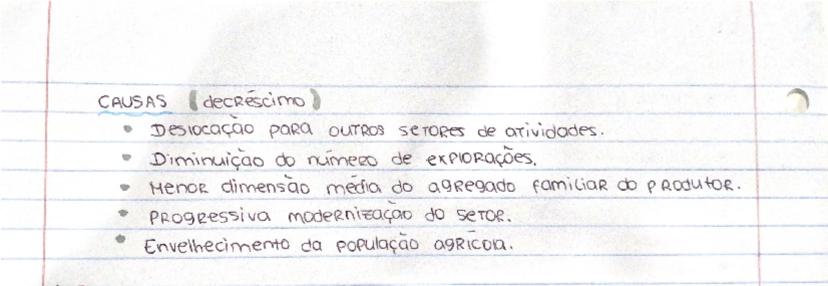 CAUSAS (decréscimo)
• Deslocação para outros setores de atividades.
• Diminuição do número de explorações.
• Menor dimensão média do agregado familiar do produtor.
• Progressiva modernização do setor.
• Envelhecimento da população agrícola.